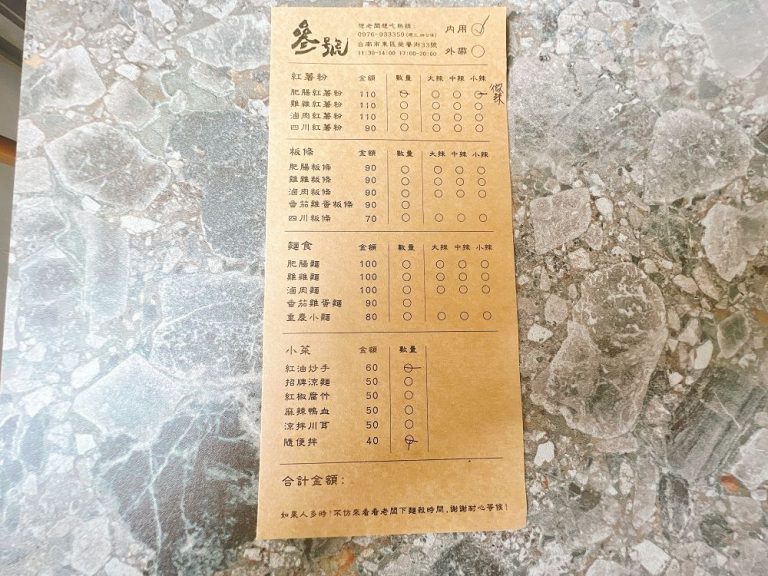 參號
想老闆想吃熱線:
0976-033359
台南市東區榮譽街33號
11:30-14:00 17:00-20:00
內用
外帶
紅薯粉 金額 數量 大辣 中辣 小辣
肥腸紅薯粉 110 微辣
雞雜紅薯粉 110
滷肉紅薯粉 110
四川紅薯粉 90
板條 金額 數量 大辣 中辣 小辣
肥腸板條 90
雞雜板條 90
滷肉板條 90
番茄雞蛋板條 90
四川板條 70
麵食 金額 數量 大辣 中辣 小辣
肥腸麵 100
雞雜麵 100
滷肉麵 100
番茄雞蛋麵 90
重慶小麵 80
小菜 金額 數量
紅油炒手 60
招牌涼麵 50
紅椒腐竹 50
麻辣鴨血 50
涼拌川耳 50
隨便拌 40
合計金額:
如果人多時!不仿來看看老闆下麵殺時間,謝謝耐心等候!